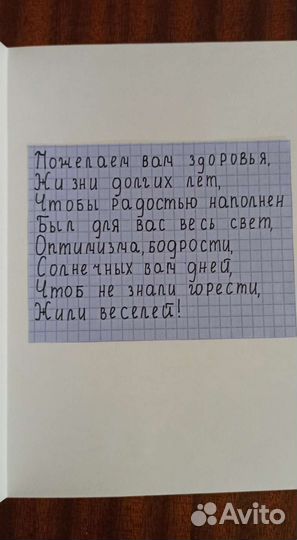 Пожелаем вам здоровья,
Жизни долгих лет,
Чтобы радостью наполнен
Был для вас весь свет,
Оптимизма, бодрости,
Солнечных вам дней,
Чтоб не знали горести,
Жили веселей!
Avito